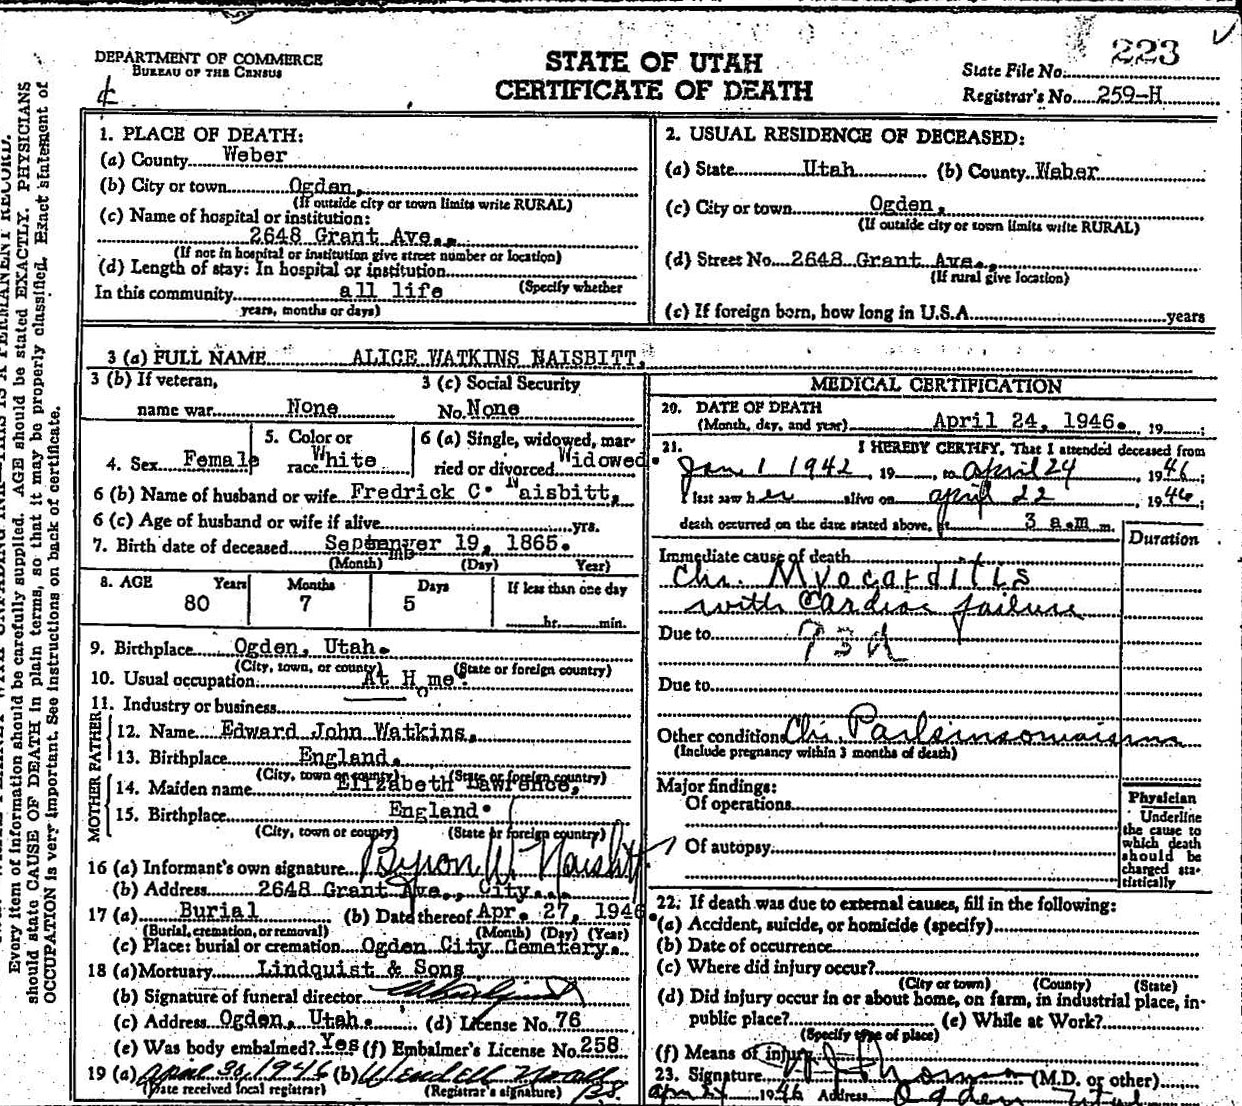 223
DEPARTMENT OF COMMERCE
BUREAU OF THE CENSUS
STATE OF UTAH
CERTIFICATE OF DEATH
State File No.
Registrar's No. 259-H
Every item of information should be carefully supplied. AGE should be stated EXACTLY. PHYSICIANS
should state CAUSE OF DEATH in plain terms, so that it may be properly classified. Exact statement of
OCCUPATION is very important. See instructions on back of certificate.
1. PLACE OF DEATH:
(a) County Weber
(b) City or town Ogden,
(If outside city or town limits write RURAL)
(c) Name of hospital or institution:
2648 Grant Ave.,
(If not in hospital or institution give street number or location)
(d) Length of stay: In hospital or institution
In this community all life (Specify whether
years, months or days)
2. USUAL RESIDENCE OF DECEASED:
(a) State Utah (b) County Weber
(c) City or town Ogden,
(If outside city or town limits write RURAL)
(d) Street No. 2648 Grant Ave.,
(If rural give location)
(e) If foreign born, how long in U.S.A. years
3 (a) FULL NAME ALICE WATKINS NAISBITT.
3 (b) If veteran,
name war None
3 (c) Social Security
No. None
4. Sex Female
5. Color or
race White
6 (a) Single, widowed, mar-
ried or divorced Widowed.
6 (b) Name of husband or wife Fredrick C. Naisbitt,
6 (c) Age of husband or wife if alive yrs.
7. Birth date of deceased 19, 1865.
(Month) (Day) Year)
8. AGE Years Months Days If less than one day
80 7 5 hr. min.
9. Birthplace Ogden, Utah.
(City, town, or county) (State or foreign country)
10. Usual occupation At Home.
11. Industry or business
FATHER
12. Name Edward John Watkins,
13. Birthplace England.
(City, town or county) (State or foreign country)
MOTHER
14. Maiden name Elizabeth Lawrence,
15. Birthplace England.
(City, town or county) (State or foreign country)
16 (a) Informant's own signature Byron W. Naisbitt
(b) Address 2648 Grant Ave., City.
17 (a) Burial (b) Date thereof Apr. 27, 1946
(Burial, cremation, or removal) (Month) (Day) (Year)
(c) Place: burial or cremation Ogden City Cemetary.
18 (a) Mortuary Lindquist & Sons
(b) Signature of funeral director
(c) Address Ogden, Utah. (d) License No. 76
(e) Was body embalmed? Yes (f) Embalmer's License No. 258
19 (a) April 30, 1946 (b) Wendell
(Date received local registrar) (Registrar's signature)
MEDICAL CERTIFICATION
20. DATE OF DEATH
(Month, day, and year) April 24, 1946. 19
21. I HEREBY CERTIFY, That I attended deceased from
Jan 1 1942, 19 , to April 24, 1946;
I last saw her alive on april 22, 1946;
death occurred on the date stated above, at 3 a.m m.
Duration
Immediate cause of death
Chr. Myocarditis
with Cardiac failure
Due to 93d
Due to
Other conditions Chr
(Include pregnancy within 3 months of death)
Major findings:
Of operations
Of autopsy
Physician
Underline
the cause to
which death
should be
charged sta-
tistically
22. If death was due to external causes, fill in the following:
(a) Accident, suicide, or homicide (specify)
(b) Date of occurrence
(c) Where did injury occur?
(City or town) (County) (State)
(d) Did injury occur in or about home, on farm, in industrial place, in-
public place? (e) While at Work?
(Specify type of place)
(f) Means of injury
23. Signature (M.D. or other)
1946 Address Ogden Utah